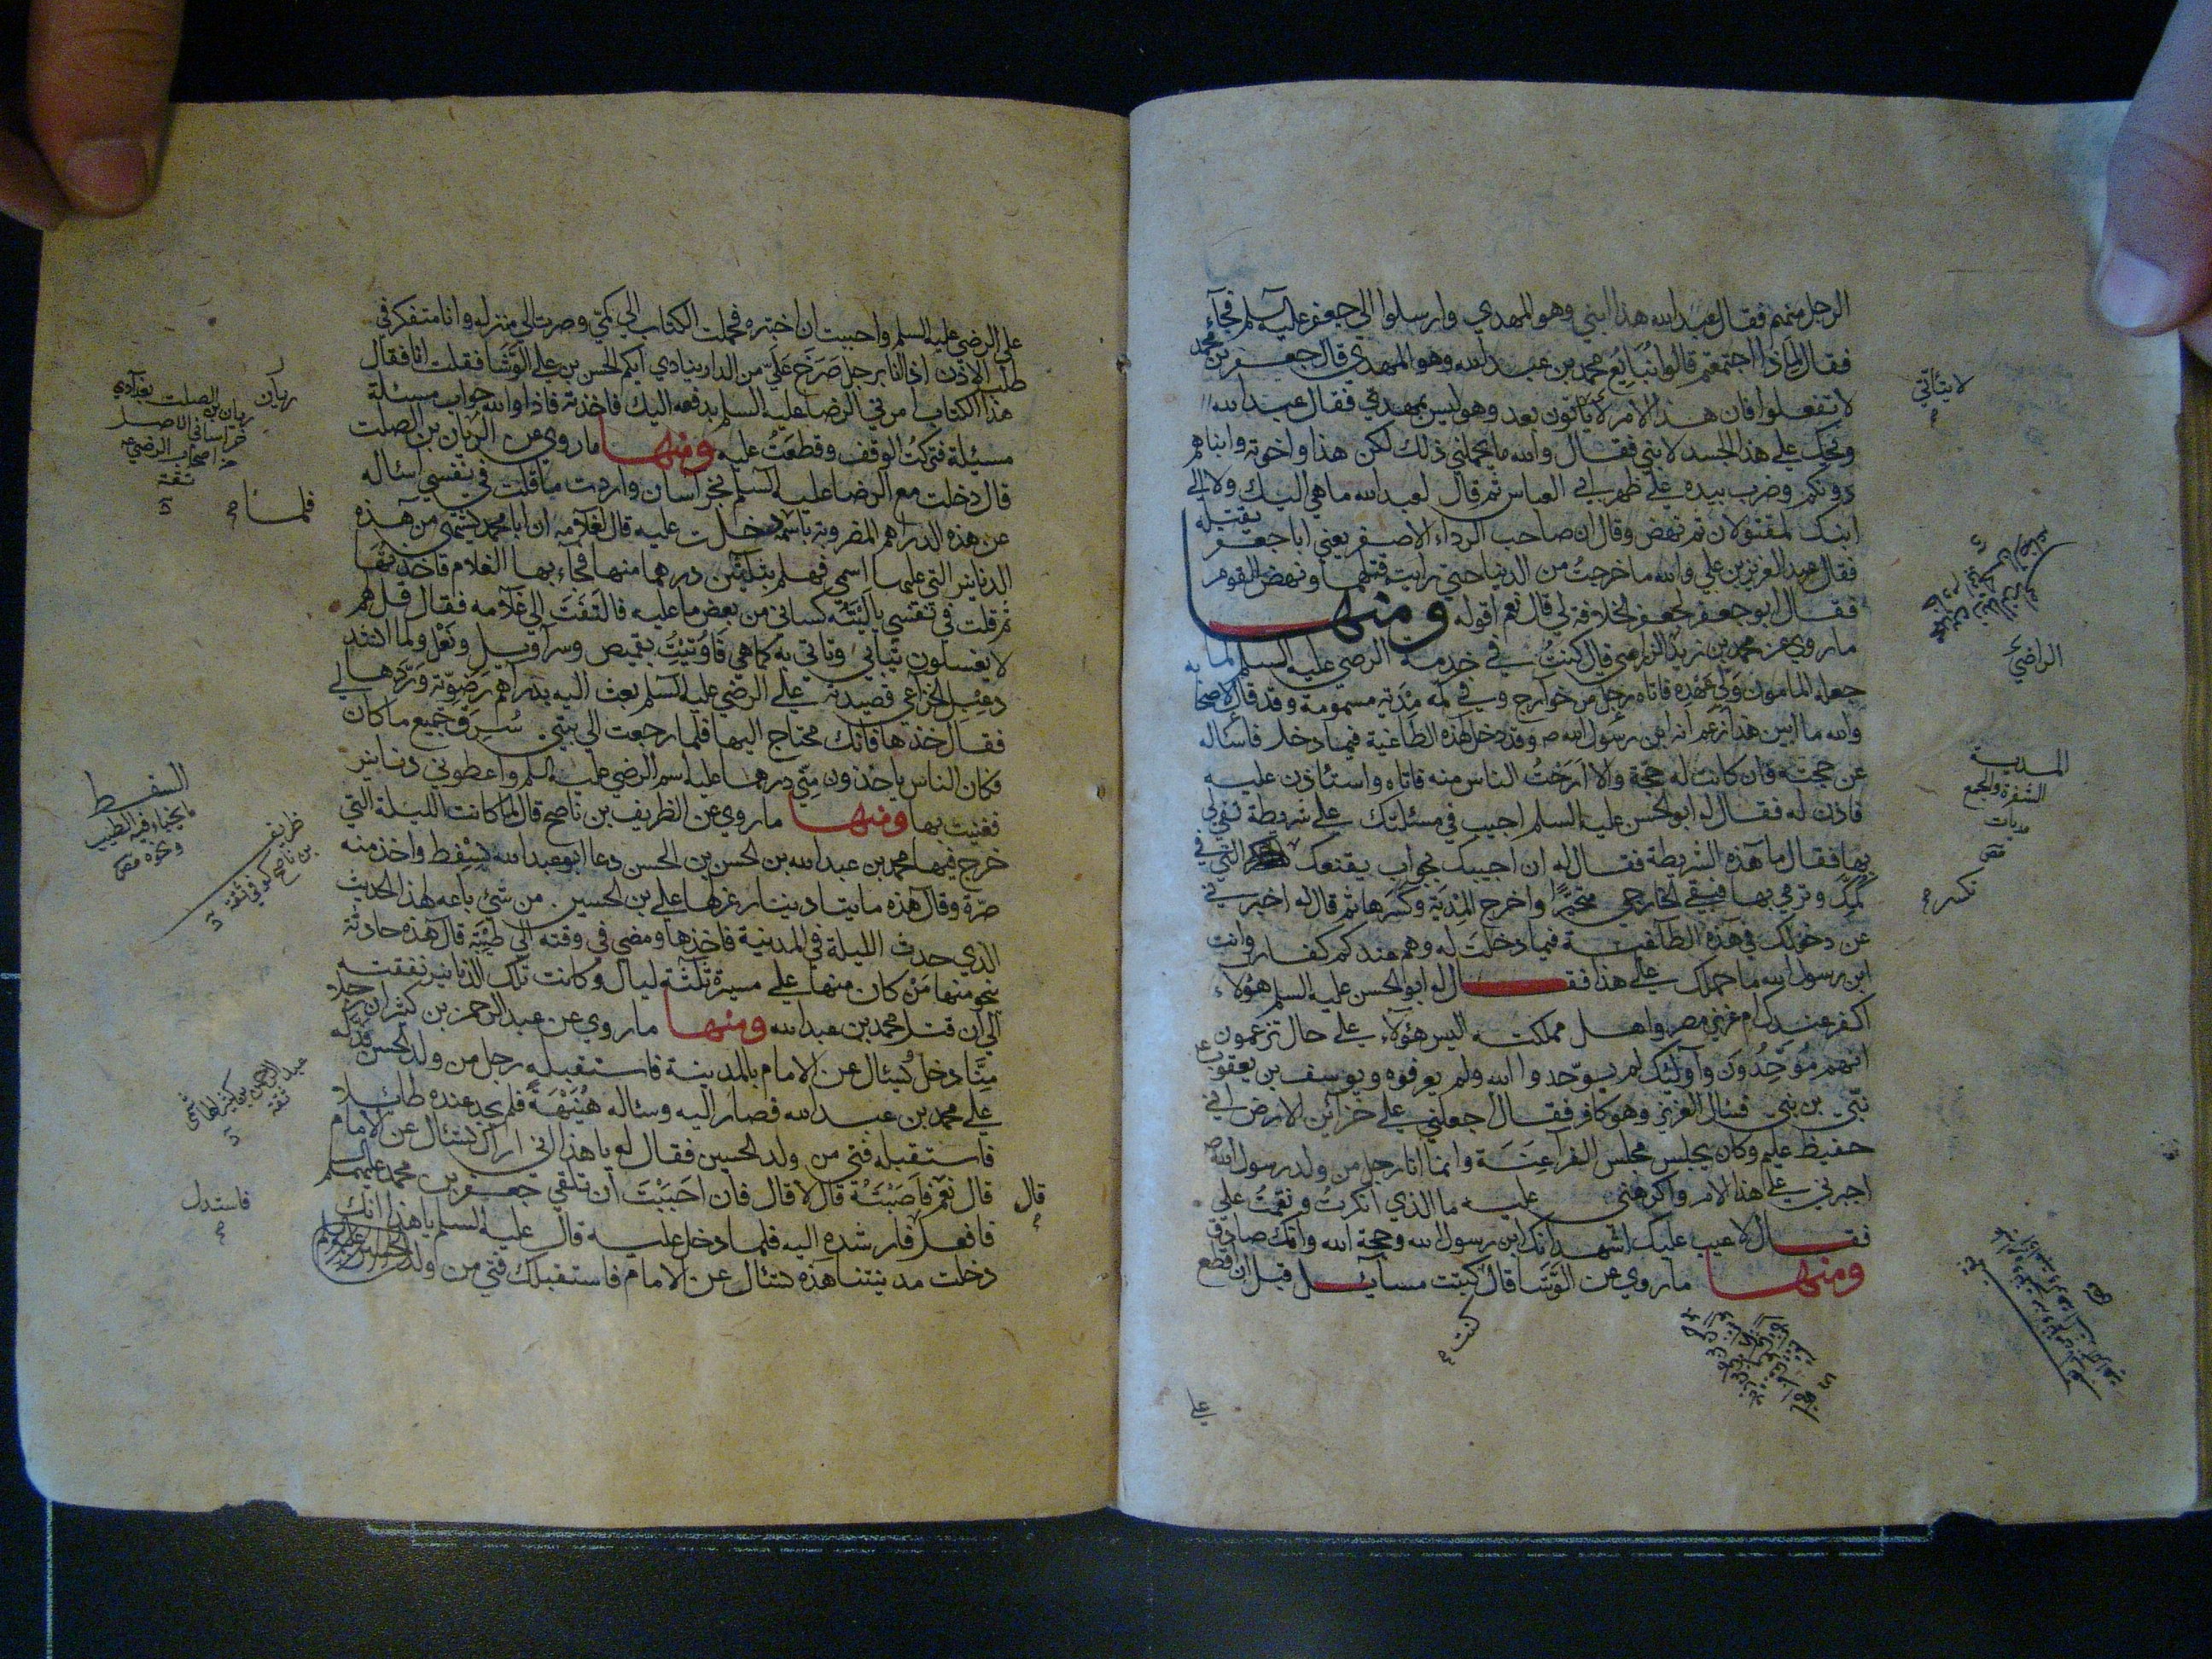 الرجل منهم فقال عبد الله هذا ابني وهو المهدي وارسلوا الى جعفر عليه السلم فجآء
فقال لماذا اجتمعتم قالوا نُبَايع محمد بن عبد الله وهو المهدي قال جعفر بن محمد
لا تفعلوا فان هذا الامر لا يأتون بعد وهو ليس بمهدي فقال عبد الله
ويحك على هذا الجسد لابني فقال والله ما يحملني ذلك لكن هذا واخوته وابناهم
دونكم وضرب بيده على ظهر ابي العباس ثم قال لعبد الله ما هي اليك ولا الى
ابنيك لمقتولان ثم نهض وقال ان صاحب الرداء الاصفر يعني ابا جعفر يقتله
فقال عبد العزيز بن علي والله ما خرجتُ من الدنيا حتى رايت قتلهما ونهض القوم
فقال ابو جعفر لجعفر الخلافة لي قال نعم اقوله ومنها
ما روي عن محمد بن زيد الزرامي قال كنتُ في خدمة الرضي عليه السلم لما
جعله المامون ولي عهده فاتاه رجل من خوارج وفي كمه مدية مسمومة وقد قال لاصحابه
والله ما ابين هذا زعم انه ابن رسول الله ص وقد دخل لهذه الطاغية فيما دخل فاسأله
عن حجته فان كانت له حجة والا ارحتُ الناس منه فاتاه واستأذن عليه
فاذن له فقال له ابو الحسن عليه السلم اجيب في مسئلتك على شريطة تفي لي
بها فقال ما هذه الشريطة فقال له ان اجيبك بجواب يقنعك التي في
كمك وترمي بها فبقي الخارجي متحيرًا واخرج المدية وكسرها ثم قال له اخبرني
عن دخولك في هذه الطاغية فيما دخلت له وهم عندكم كفار وانت
ابن رسول الله ما حملك على هذا فقال له ابو الحسن عليه السلم هؤلاء
اكفر عندك ام عزيز مصر واهل مملكته اليس هؤلاء على حال تزعمون
انهم موحدون واولئك لم يوحدوا الله ولم يعرفوه ويوسف بن يعقوب ع
نبي بن نبي فسال العزيز وهو كافر فقال اجعلني على خزائن الارض اني
حفيظ عليم وكان يجلس مجلس الفراعنة وانما انا رجل من ولد رسول الله ص
اجبرني على هذا الامر واكرهني عليه ما الذي انكرت ونقمت علي
فقال لا عيب عليك اشهد انك ابن رسول الله وحجة الله وانك صادق
ومنها ما روي عن الوَشَا قال كتبت مسآئل قبل ان اقطع
لا يتأتى
الراضي
المدية
الشفرة والجمع
مديات
ص
تكسر
كنت
علي
على الرضي عليه السلم واحببت ان اختبره فحملت الكتاب الى كمي وصرت الى منزله وانا متفكر في
طلب الاذن اذا انا برجل صرخ علي من الدار ينادي ايكم الحسن بن علي الوشا فقلت انا فقال
هذا الكتاب امرني الرضا عليه السلم بدفعه اليك فاخذته فاذا والله جواب مسئلة
مسئلة فتركتُ الوقف وقطعتُ عليه ومنها ما روي عن الريان بن الصلت
قال دخلت مع الرضا عليه السلم بخراسان واردت ما قلت في نفسي اسئاله
عن هذه الدراهم المضروبة باسمه دخلت عليه قال لغلامه ان ابا محمد يشتهي من هذه
الدنانير التي عليها اسمي فهلم بثلاثين درهما منها فجاء بها الغلام فاخذتها
ثم قلت في نفسي ياليته كساني من بعض ما عليه فالتفت الى غلامه فقال قل لهم
لا يغسلون ثيابي وتاتي به كما هي فاوتيتُ بقميص وسراويل ونعل ولما انشد
دعبل الخزاعي قصيدته على الرضي عليه السلم بعث اليه بدراهم رضوية وردها الي
فقال خذها فانك محتاج اليها فلما رجعت الى بيتي سرق جميع ما كان
فكان الناس ياخذون مني درهما عليه اسم الرضي عليه السلم واعطوني دنانير
فغنيت بها ومنها ما روي عن الظريف بن ناصح قال لما كانت الليلة التي
خرج فيها محمد بن عبد الله بن الحسن بن الحسن دعا ابو عبد الله بسفط واخذ منه
صرة وقال هذه مايتا دينار عزلها علي بن الحسين من شئ باعه لهذا الحديث
الذي حدث الليلة في المدينة فاخذها ومضى في وقته الى طيبة قال هذه حادثة
ينجو منها من كان منها على مسيرة ثلثة ليال وكانت تلك الدنانير نفقته
الى ان قتل محمد بن عبد الله ومنها ما روي عن عبد الرحمن بن كثير ان رجلا
منا دخل يسئال عن الامام بالمدينة فاستقبله رجل من ولد الحسن فدله
على محمد بن عبد الله فصار اليه وسئاله هنيهة فلم يجد عنده طائلا
فاستقبله فتى من ولد الحسين فقال له يا هذا اني اراك تسئال عن الامام
قال نعم فاصبته قال لا قال فان احببت ان تلقى جعفر بن محمد عليهم السلم
فافعل فارشده اليه فلما دخل عليه قال عليه السلم يا هذا انك
دخلت مدينتنا هذه تسئال عن الامام فاستقبلك فتى من ولد الحسن
ريان
ريان بن الصلت بغدادي
خراساني الاصل
من اصحاب الرضي ع
ثقة
فلما
السفط
ما يخباء فيه الطيب
ونحوه ص
ظريف
بن ناصح كوفي ثقة
عبد الرحمن بن كثير الهاشمي
ثقة
قال
فاستدل